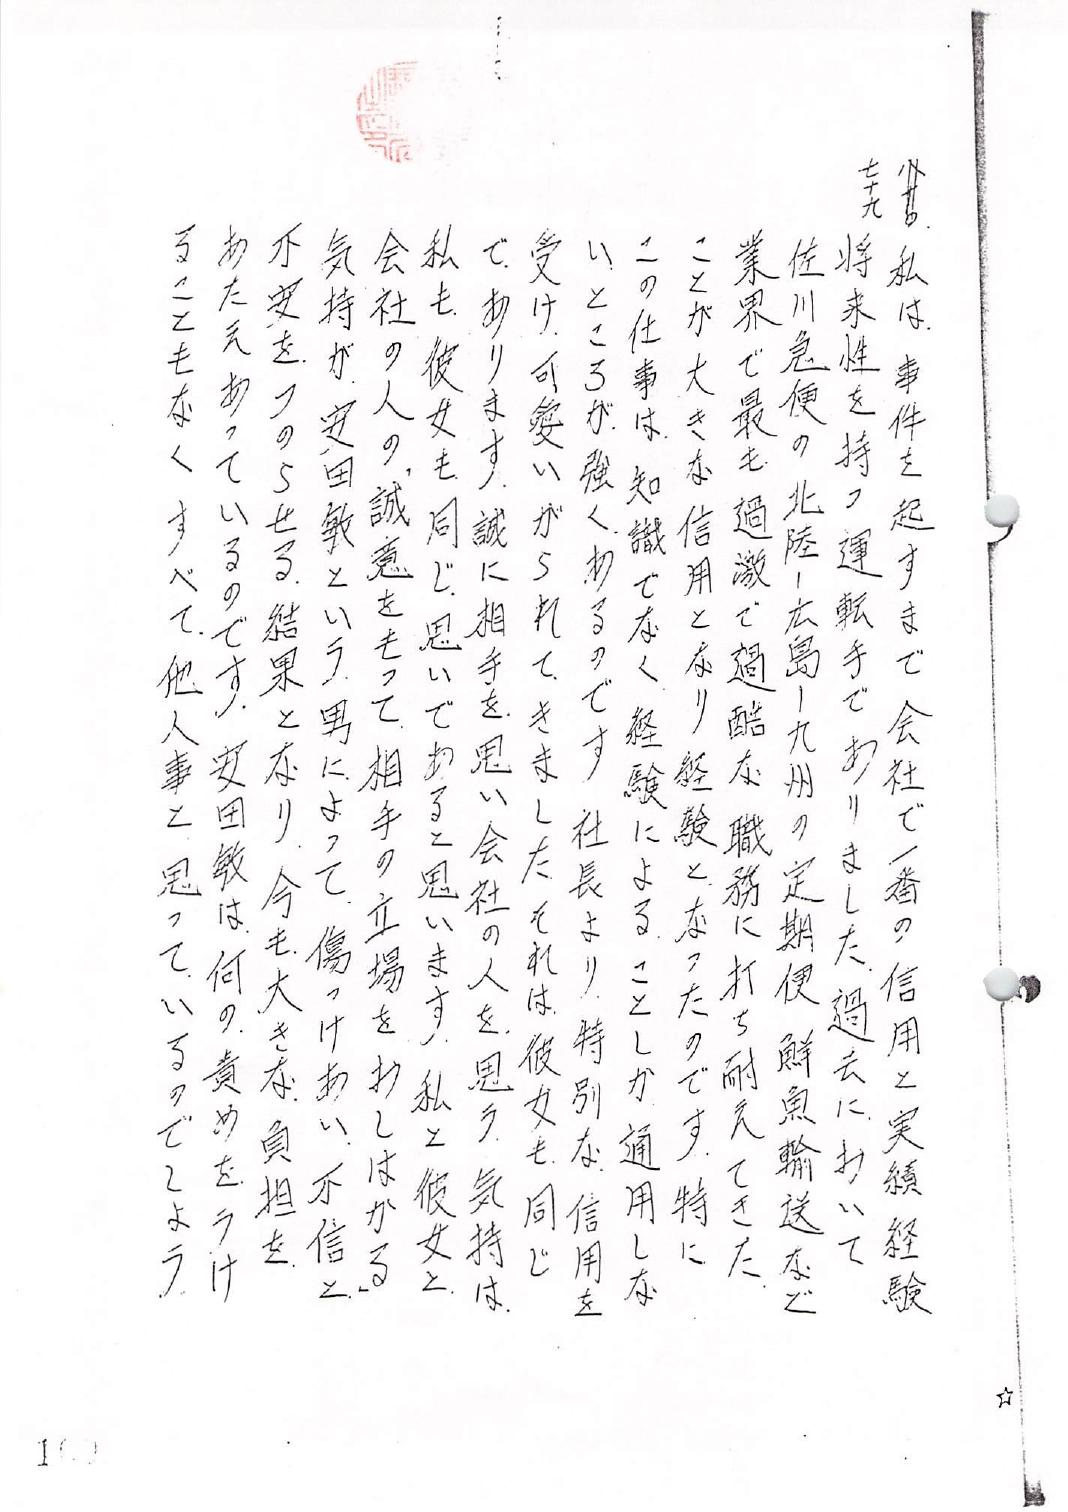 七十九
私は、事件を起すまで会社で一番の信用と実績経験
将来性を持つ運転手でありました。過去において
佐川急便の北陸ー広島ー九州の定期便鮮魚輸送など
業界で最も過激で過酷な職務に打ち耐えてきた、
ことが大きな信用となり経験となったのです。特に
この仕事は、知識でなく経験によることしか通用しな
い、ところが、強く、あるのです。社長より、特別な信用を
受け、可愛いがられて、きました。それは、彼女も、同じ
で、あります。誠に相手を、思い会社の人を、思う、気持は、
私も、彼女も、同じ、思いであると思います。私と彼女と
会社の人の、「誠意をもって、相手の立場をおしはかる」
気持が、安田敏という、男によって、傷つけあい、不信と、
不安を、つのらせる、結果となり、今も、大きな、負担を、
あたえあっているのです。安田敏は、何の、責めを、うけ
ることもなく、すべて、他人事と、思って、いるのでしょう。